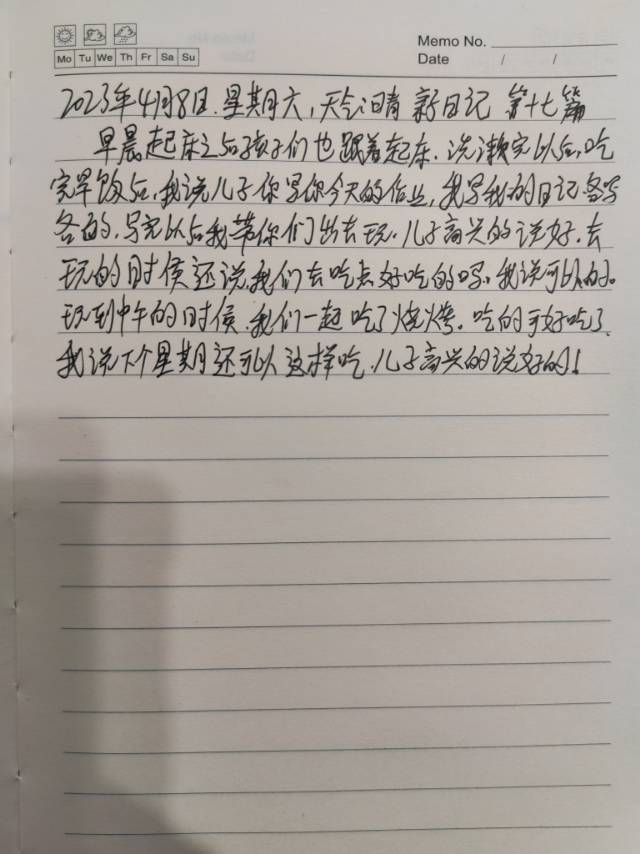 Memo No.
Mo Tu We Th Fr Sa Su
Date / /
2023年4月8日.星期六,天气:晴 新日记 第十七篇
早晨起床之后孩子们也跟着起床.洗漱完以后,吃
完早饭后,我说儿子你写你今天的作业,我写我的日记.各写
各的.写完以后我带你们出去玩.儿子高兴的说好.去
玩的时候还说我们去吃点好吃的吗.我说可以的.
玩到中午的时候.我们一起吃了烧烤.吃的可好吃了.
我说下个星期还可以这样吃.儿子高兴的说好的!